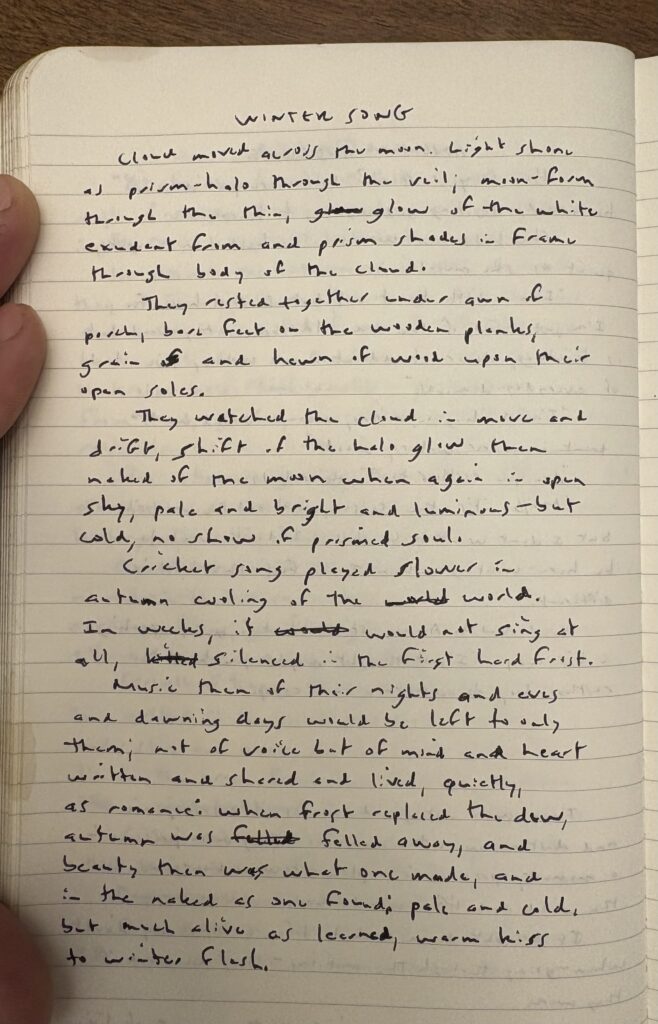 WINTER SONG
Cloud moved across the moon. Light shone
as prism-halo through the veil; moon-form
through the thin, glow of the white
exudent from and prism shades in frame
through body of the cloud.
They rested together under awn of
porch, bare feet on the wooden planks,
grain and hewn of wood upon their
open soles.
They watched the cloud in move and
drift, shift of the halo glow then
naked of the moon when again in open
sky, pale and bright and luminous—but
cold, no show of prismed soul.
Cricket song played slower in
autumn cooling of the world.
In weeks, it would not sing at
all, silenced in the first hard frost.
Music then of their nights and eves
and dawning days would be left to only
them; not of voice but of mind and heart
written and shared and lived, quietly,
as romance: when frost replaced the dew,
autumn was felled away, and
beauty then was what one made, and
in the naked as one found; pale and cold,
but much alive as learned, warm kiss
to winter flesh.